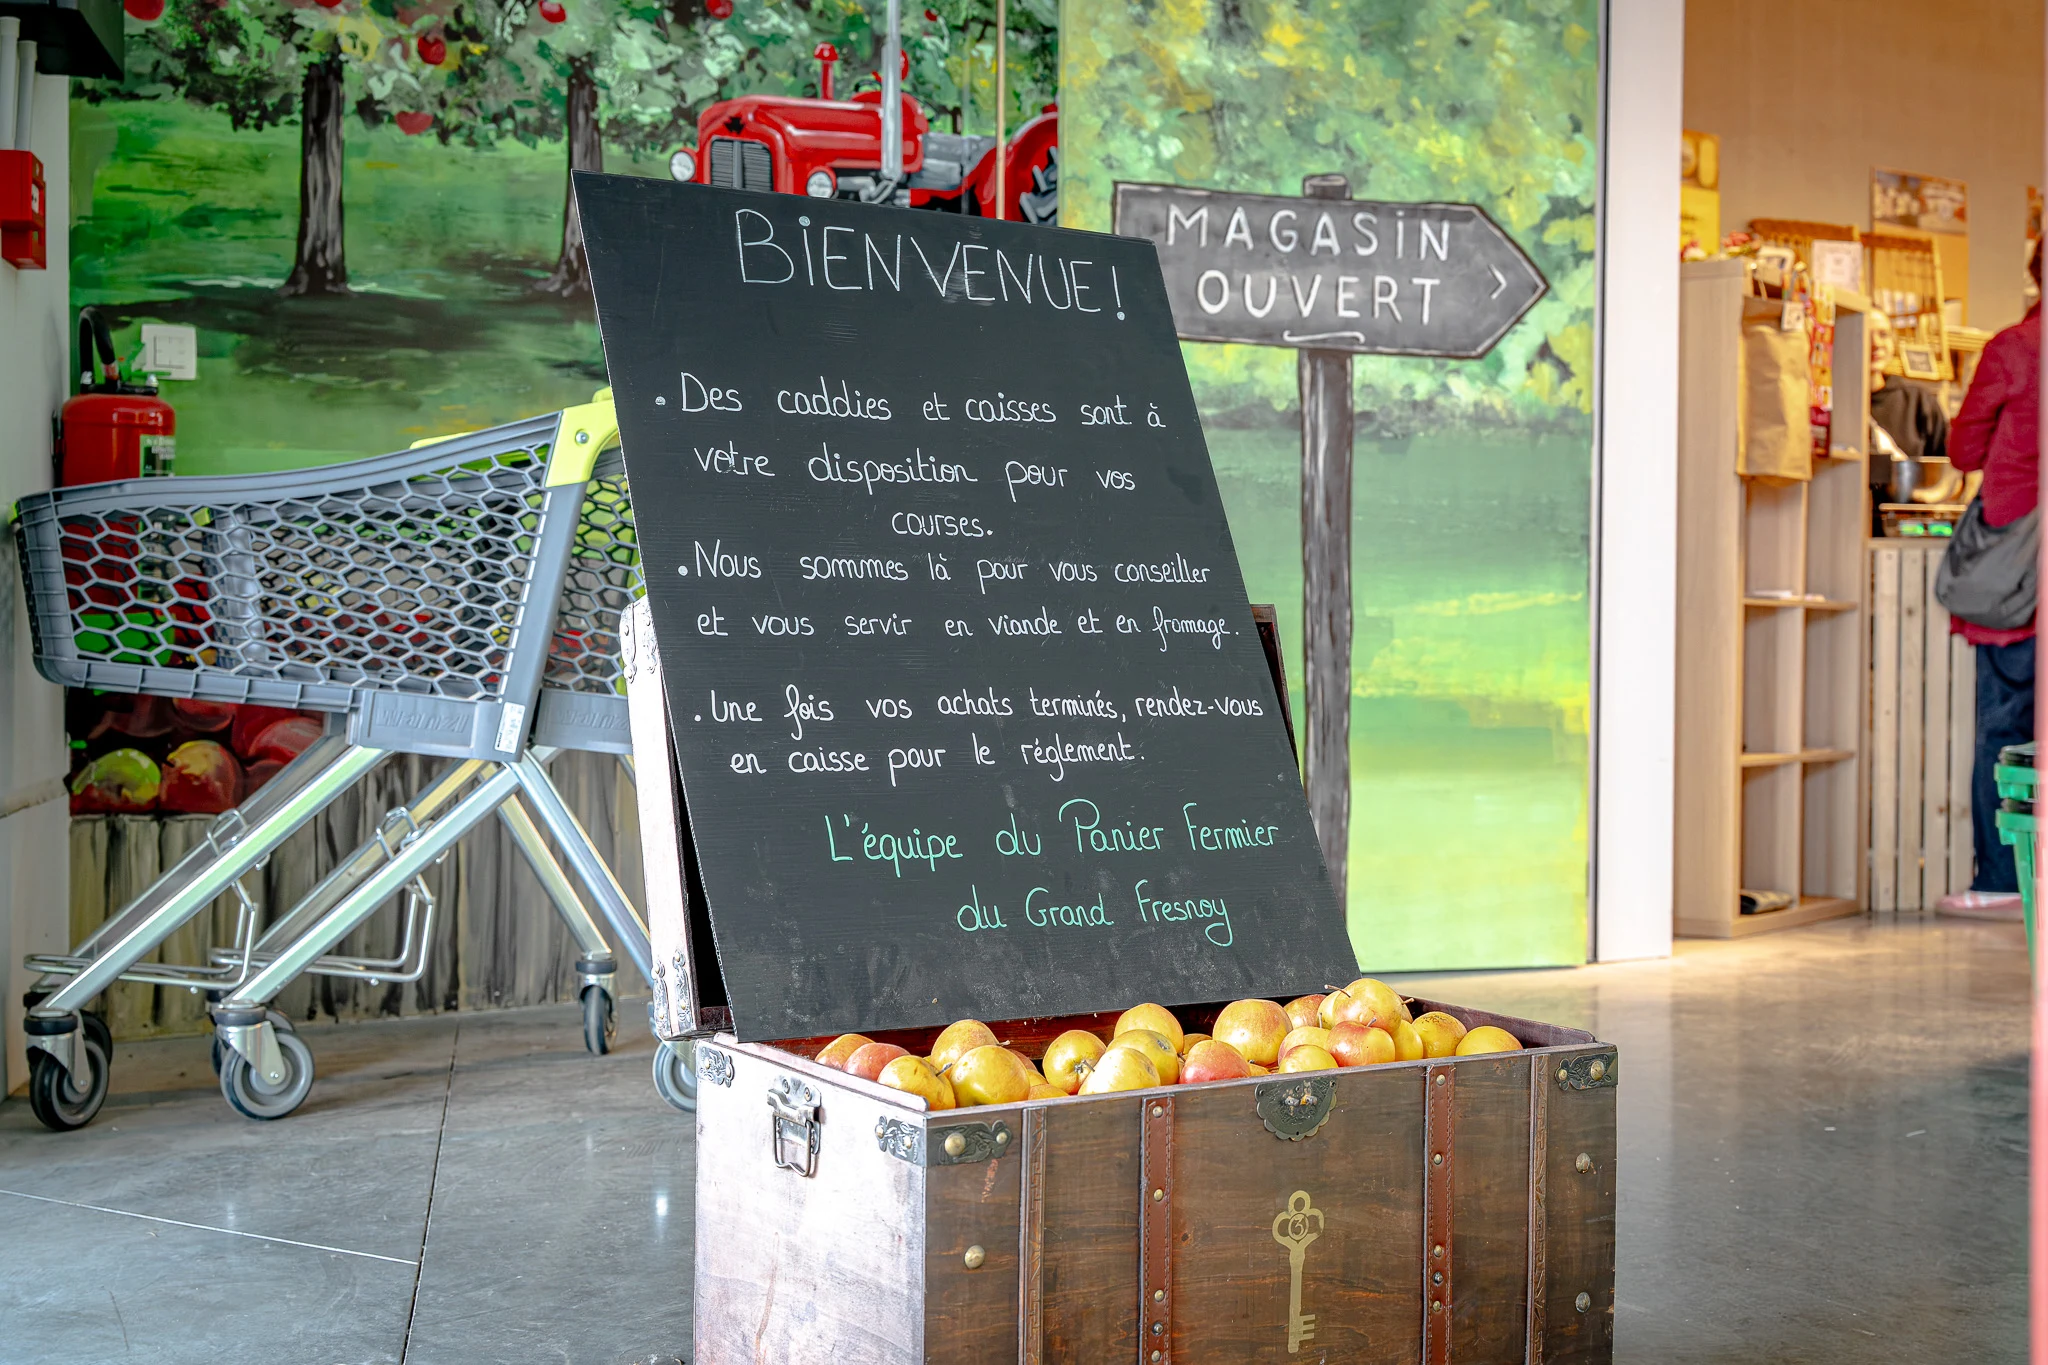 BiENVENUE!
• Des caddies et caisses sont à
votre disposition pour vos
courses.
• Nous sommes là pour vous conseiller
et vous servir en viande et en fromage.
• Une fois vos achats terminés, rendez-vous
en caisse pour le réglement.
L'équipe du Panier Fermier
du Grand Fresnoy
MAGASiN
OUVERT >
3